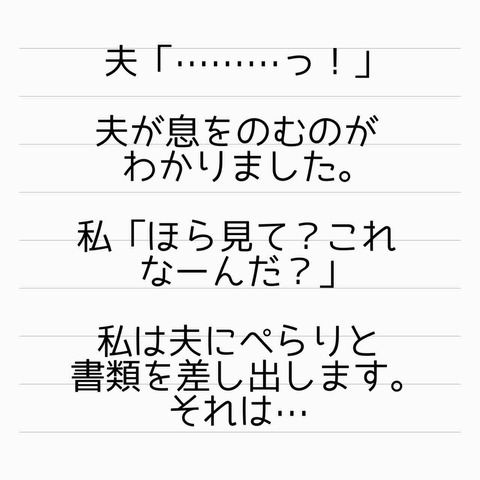 夫「………っ！」
夫が息をのむのが
わかりました。
私「ほら見て？これ
なーんだ？」
私は夫にぺらりと
書類を差し出します。
それは…